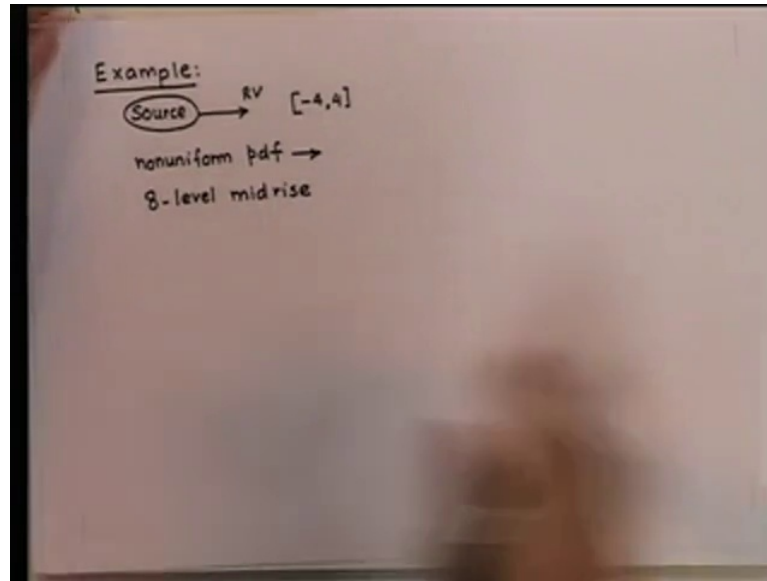 Example:
Source → RV [-4,4]
nonuniform pdf →
8-level midrise